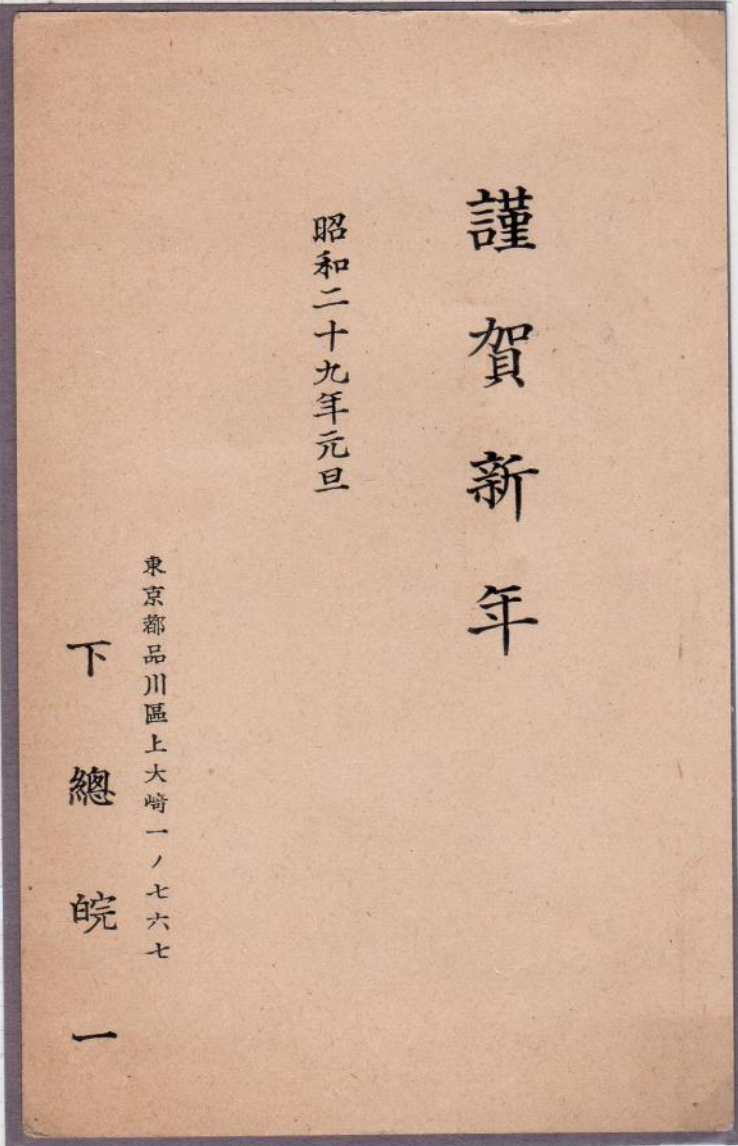 謹賀新年
昭和二十九年元旦
東京都品川區上大崎一ノ七六七
下總皖一